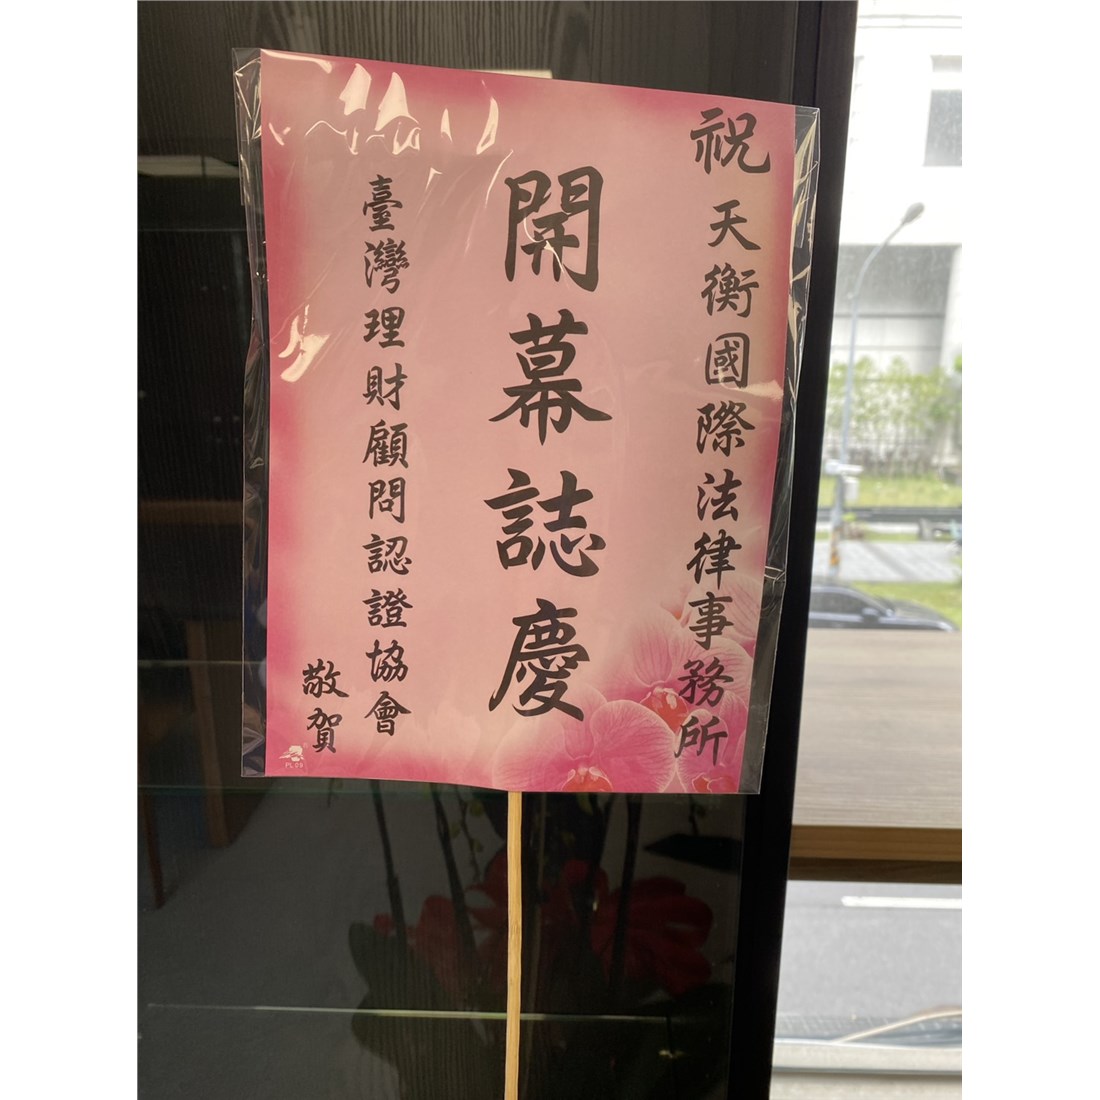 祝 天衡國際法律事務所
開幕誌慶
臺灣理財顧問認證協會
敬賀
PL 09